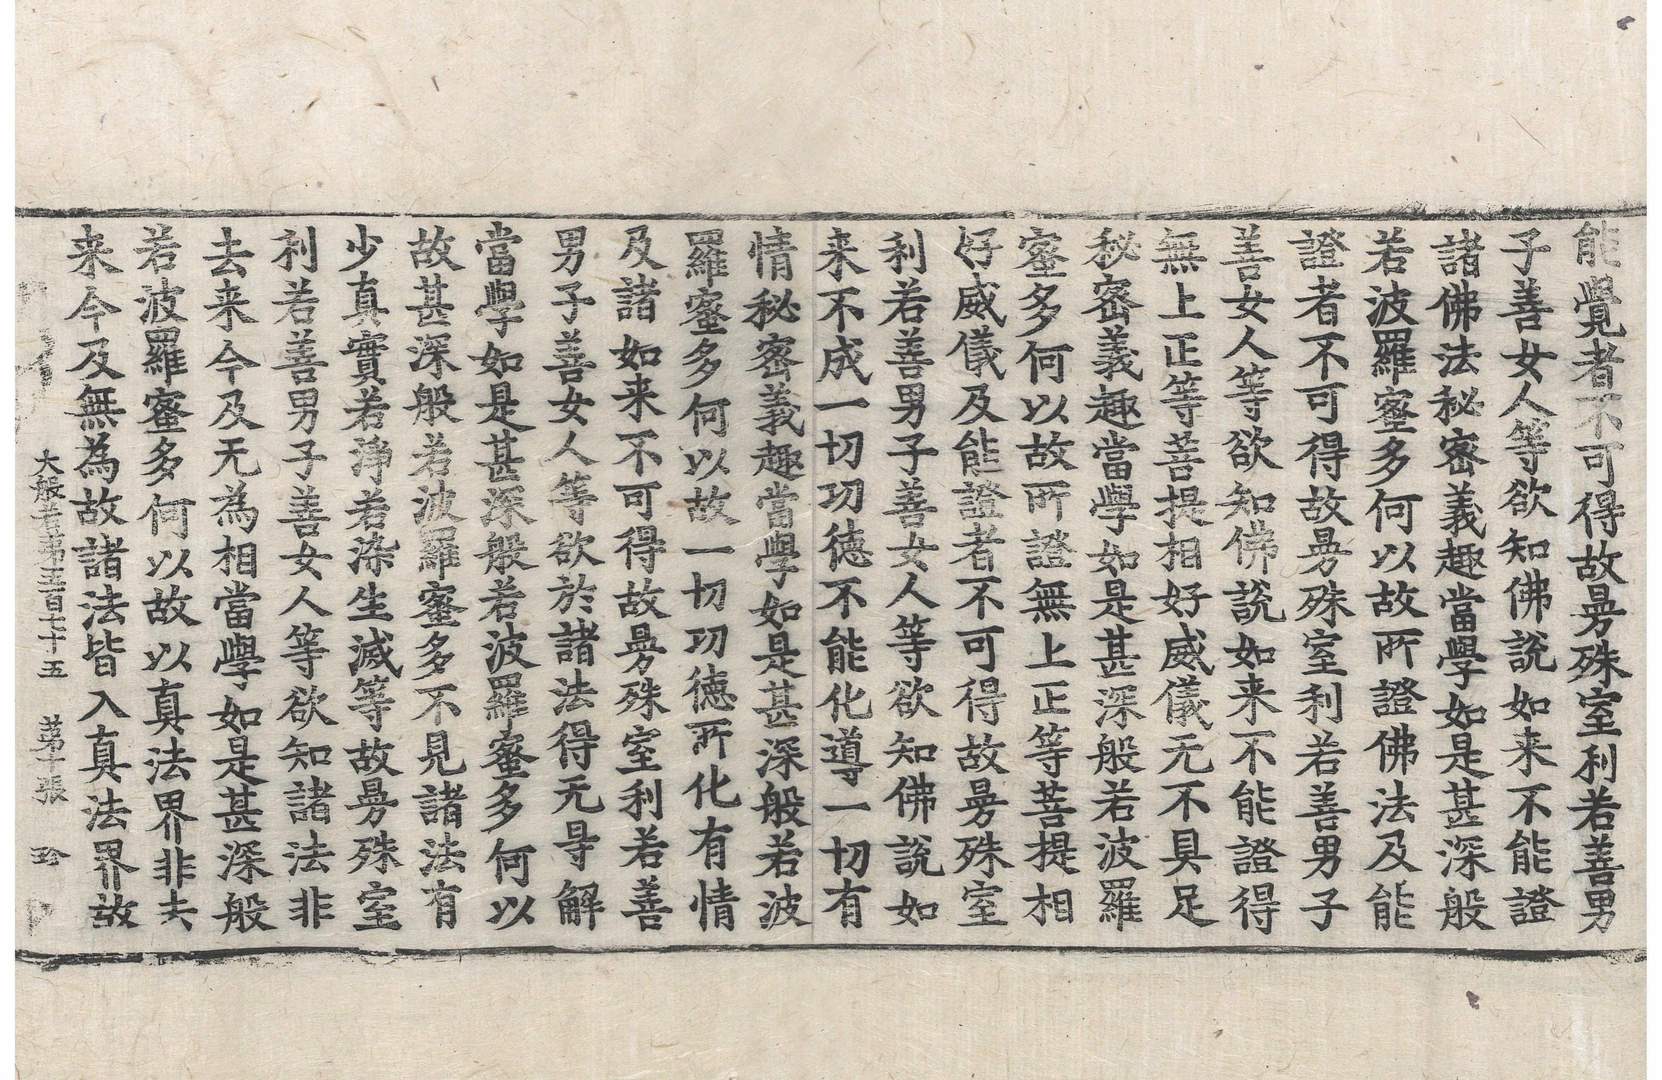 能覺者不可得故曼殊室利若善男
子善女人等欲知佛說如来不能證
諸佛法秘密義趣當學如是甚深般
若波羅蜜多何以故所證佛法及能
證者不可得故曼殊室利若善男子
善女人等欲知佛說如来不能證得
無上正等菩提相好威儀无不具足
秘密義趣當學如是甚深般若波羅
蜜多何以故所證無上正等菩提相
好威儀及能證者不可得故曼殊室
利若善男子善女人等欲知佛說如
来不成一切功德不能化導一切有
情秘密義趣當學如是甚深般若波
羅蜜多何以故一切功德所化有情
及諸如来不可得故曼殊室利若善
男子善女人等欲於諸法得无㝵解
當學如是甚深般若波羅蜜多何以
故甚深般若波羅蜜多不見諸法有
少真實若淨若染生滅等故曼殊室
利若善男子善女人等欲知諸法非
去来今及无為相當學如是甚深般
若波羅蜜多何以故以真法界非去
来今及無為故諸法皆入真法界故
大般若第五百七十五 第十張 珍